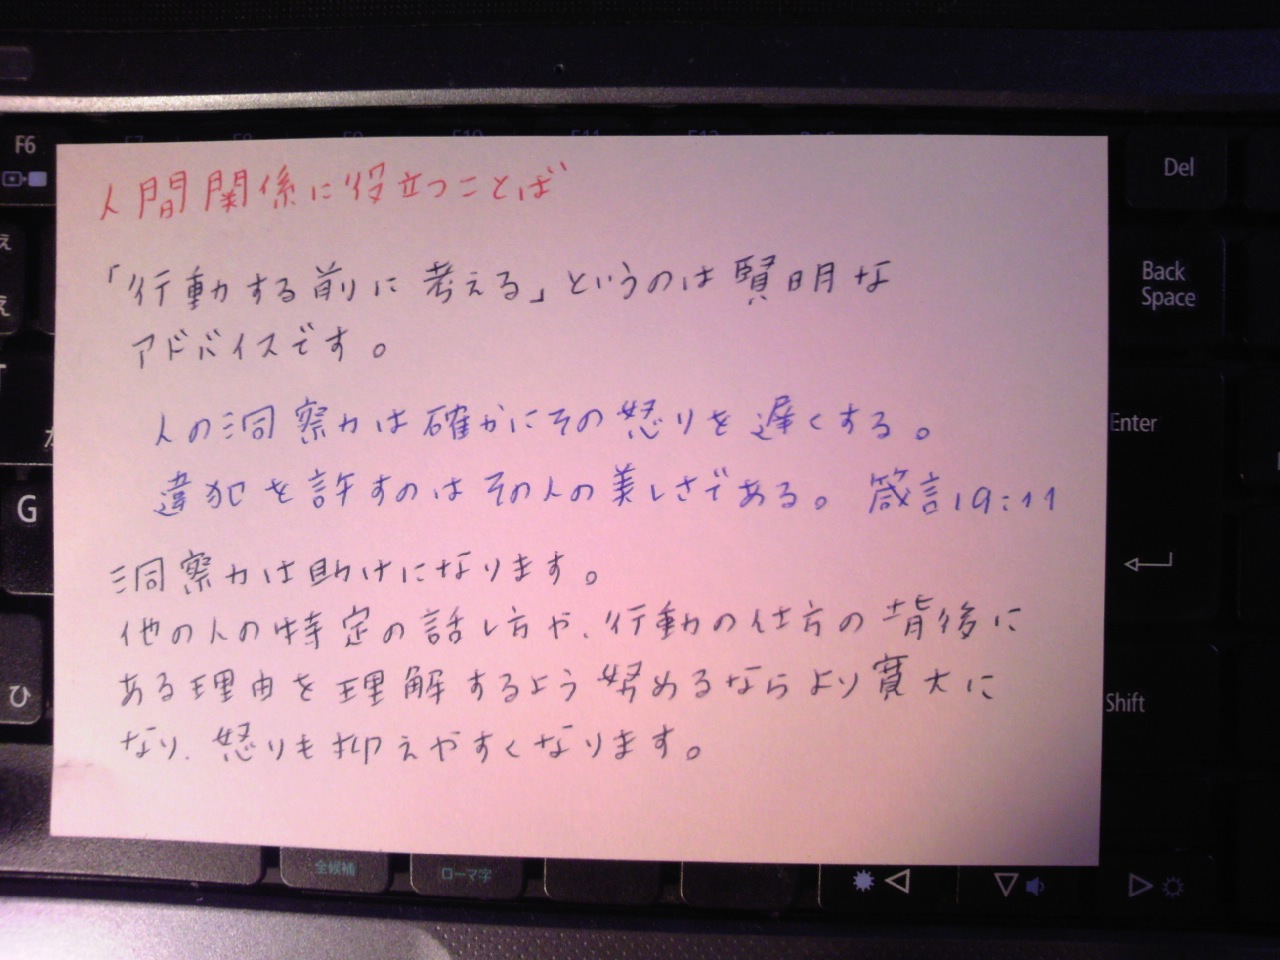 人間関係に役立つことば
「行動する前に考える」というのは賢明な
アドバイスです。
人の洞察力は確かにその怒りを遅くする。
違犯を許すのはその人の美しさである。 箴言19:11
洞察力は助けになります。
他の人の特定の話し方や、行動の仕方の背後に
ある理由を理解するよう努めるならより寛大に
なり、怒りも抑えやすくなります。
F6
Del
Back
Space
Enter
G
Shift
ひ
全候補
ローマ字